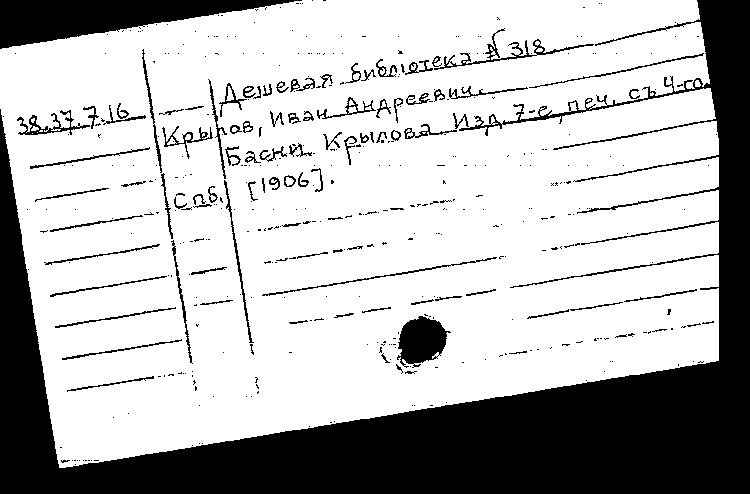 Дешевая библіотека № 318
38.37.7.16
Крылов, Иван Андреевич.
Басни Крылова Изд. 7-е, печ. съ 4-го.
Спб., [1906].